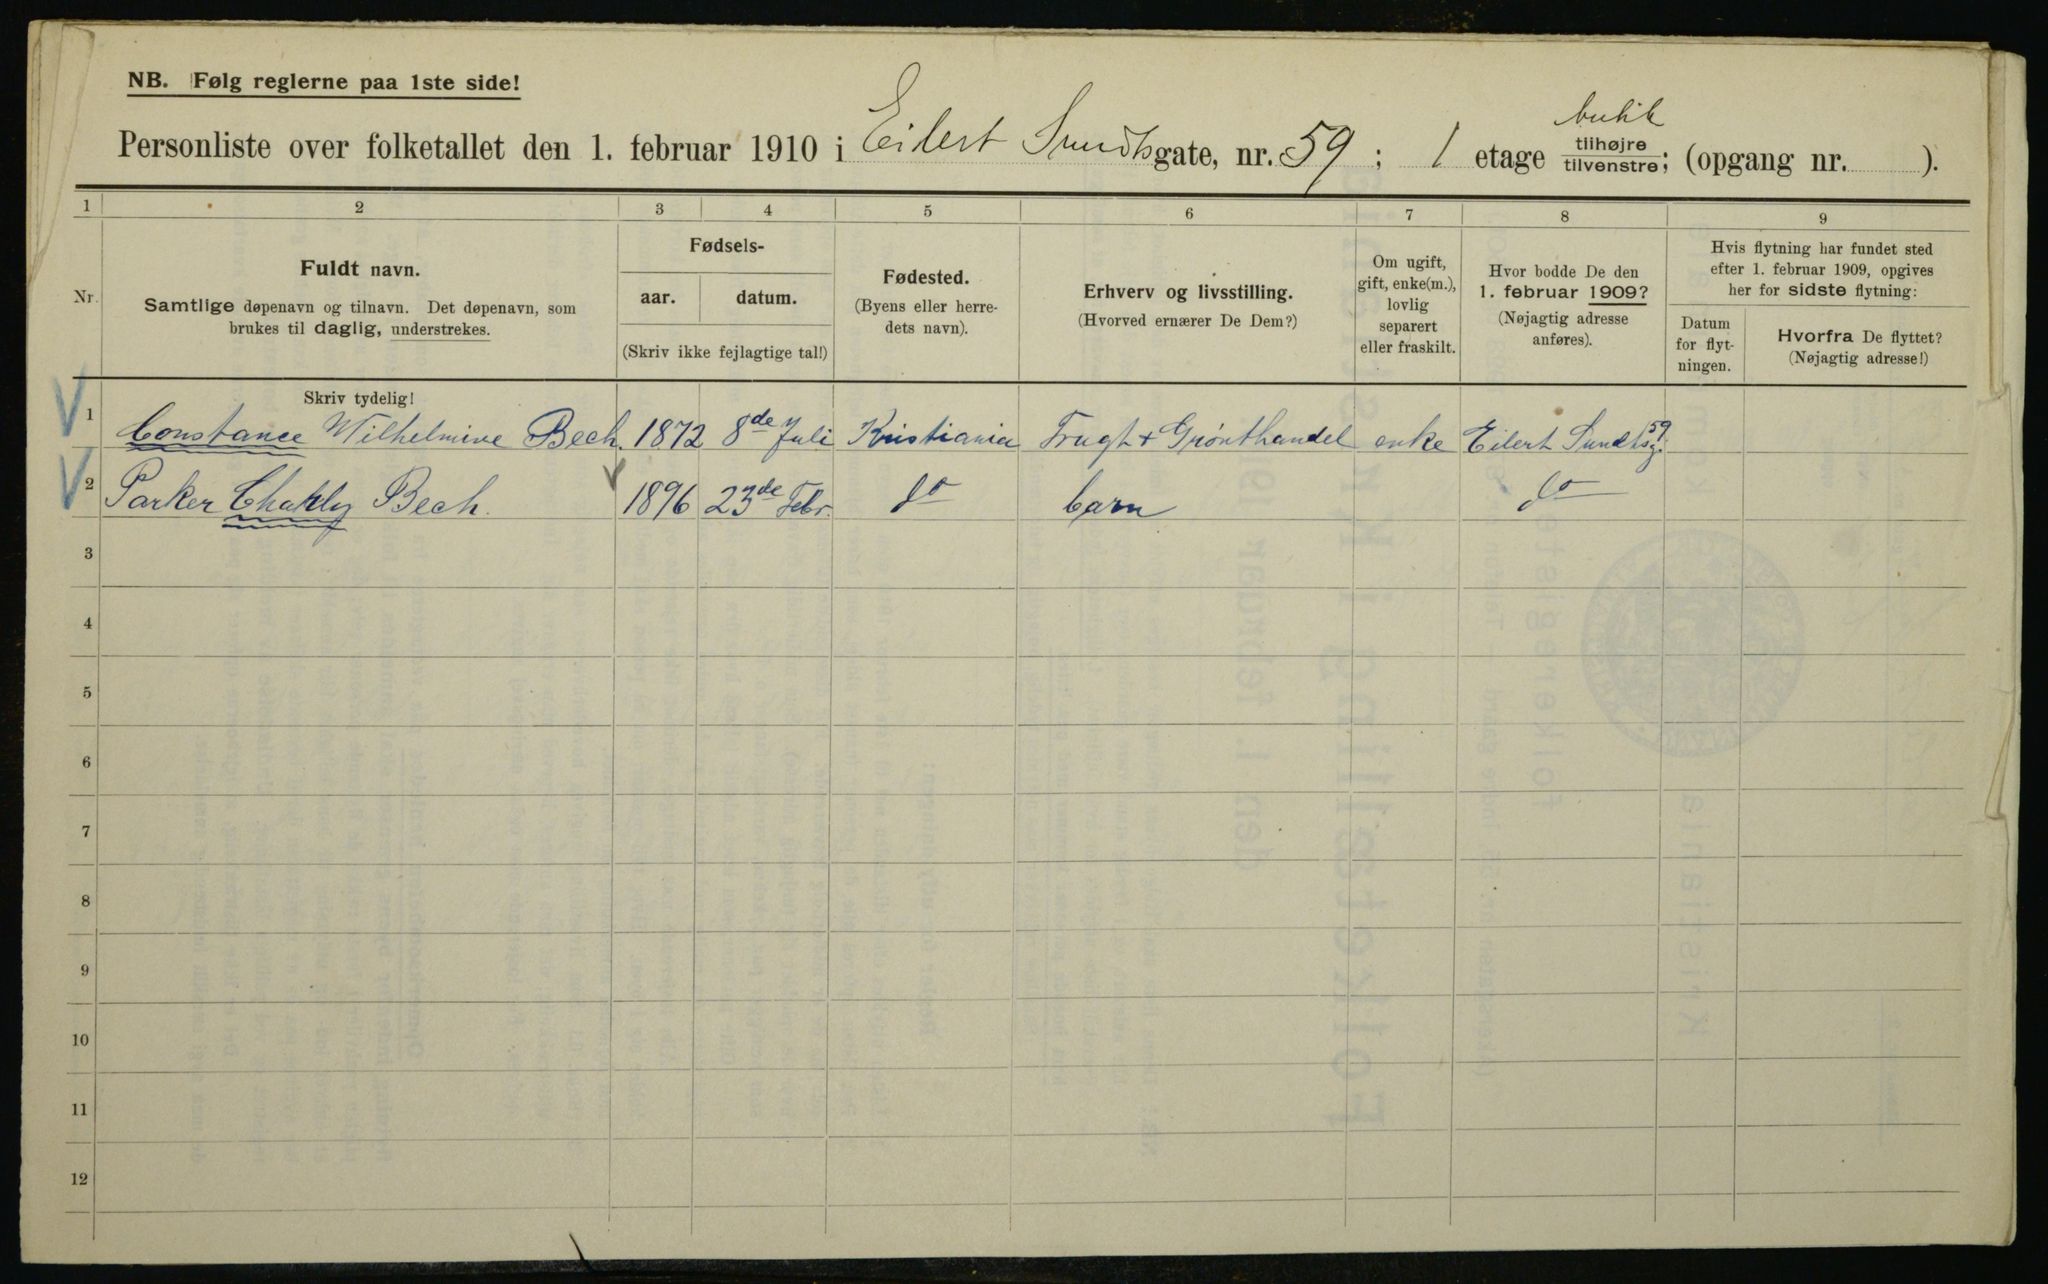 NB. Følg reglerne paa 1ste side!
butik
Personliste over folketallet den 1. februar 1910 i Eilert Sundtsgate, nr. 59; 1 etage tilhøjre tilvenstre; (opgang nr. ).
1 2 3 4 5 6 7 8 9
Nr.
Fuldt navn.
Samtlige døpenavn og tilnavn. Det døpenavn, som
brukes til daglig, understrekes.
Fødsels-
aar. datum.
(Skriv ikke fejlagtige tal!)
Fødested.
(Byens eller herre-
dets navn).
Erhverv og livsstilling.
(Hvorved ernærer De Dem?)
Om ugift,
gift, enke(m.),
lovlig
separert
eller fraskilt.
Hvor bodde De den
1. februar 1909?
(Nøjagtig adresse
anføres).
Hvis flytning har fundet sted
efter 1. februar 1909, opgives
her for sidste flytning:
Datum
for flyt-
ningen.
Hvorfra De flyttet?
(Nøjagtig adresse!)
Skriv tydelig!
1 Constance Wilhelmine Bech. 1872 8de Juli Kristiania Frugt + Grønthandel enke Eilert Sundtsg. 59
2 Parker Bech. 1896 23de Febr. do barn do
3
4
5
6
7
8
9
10
11
12